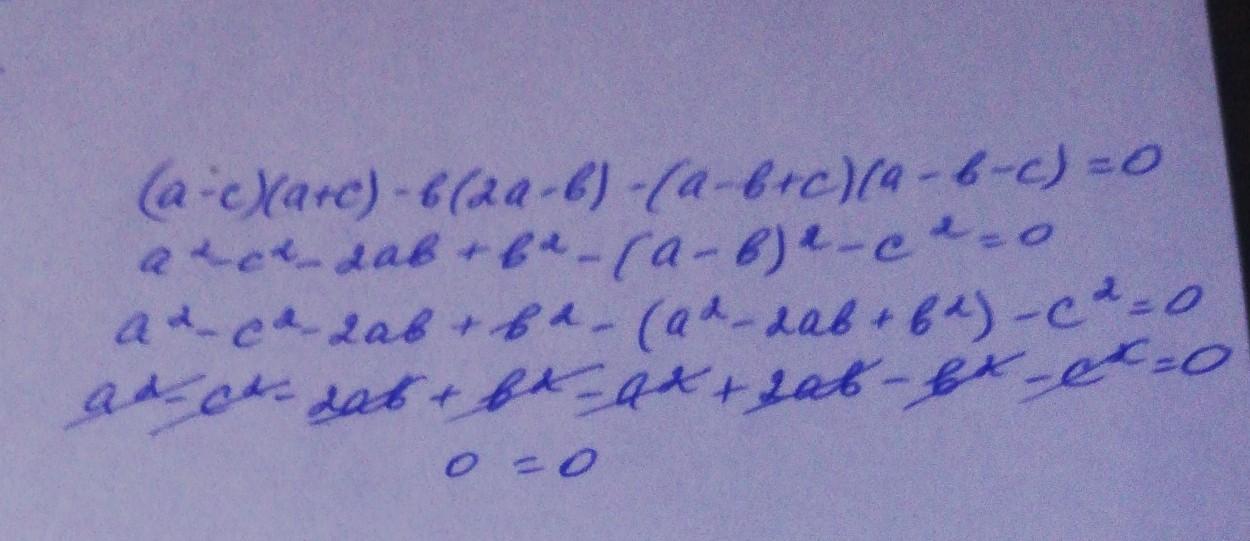 (a-c)(a+c)-b(2a-b)-(a-b+c)(a-b-c)=0
a²-c²-2ab+b²-(a-b)²-c²=0
a²-c²-2ab+b²-(a²-2ab+b²)-c²=0
a²-c²-2ab+b²-a²+2ab-b²-c²=0
0=0